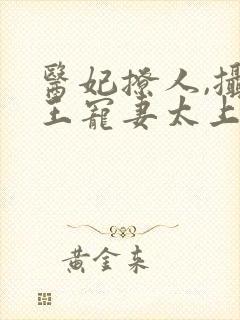 醫妃撩人,攝
王寵妻太上
黃金來